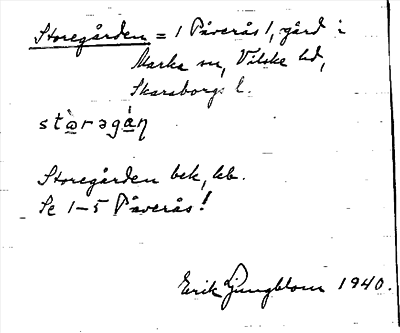 Storegården = 1 Påverås 1, gård i
Marka sn, Vilske hd,
Skaraborgs l.
stò̱rəgà̱ṇ
Storegården bek, lb.
Se 1–5 Påverås!
Erik Ljungblom 1940.